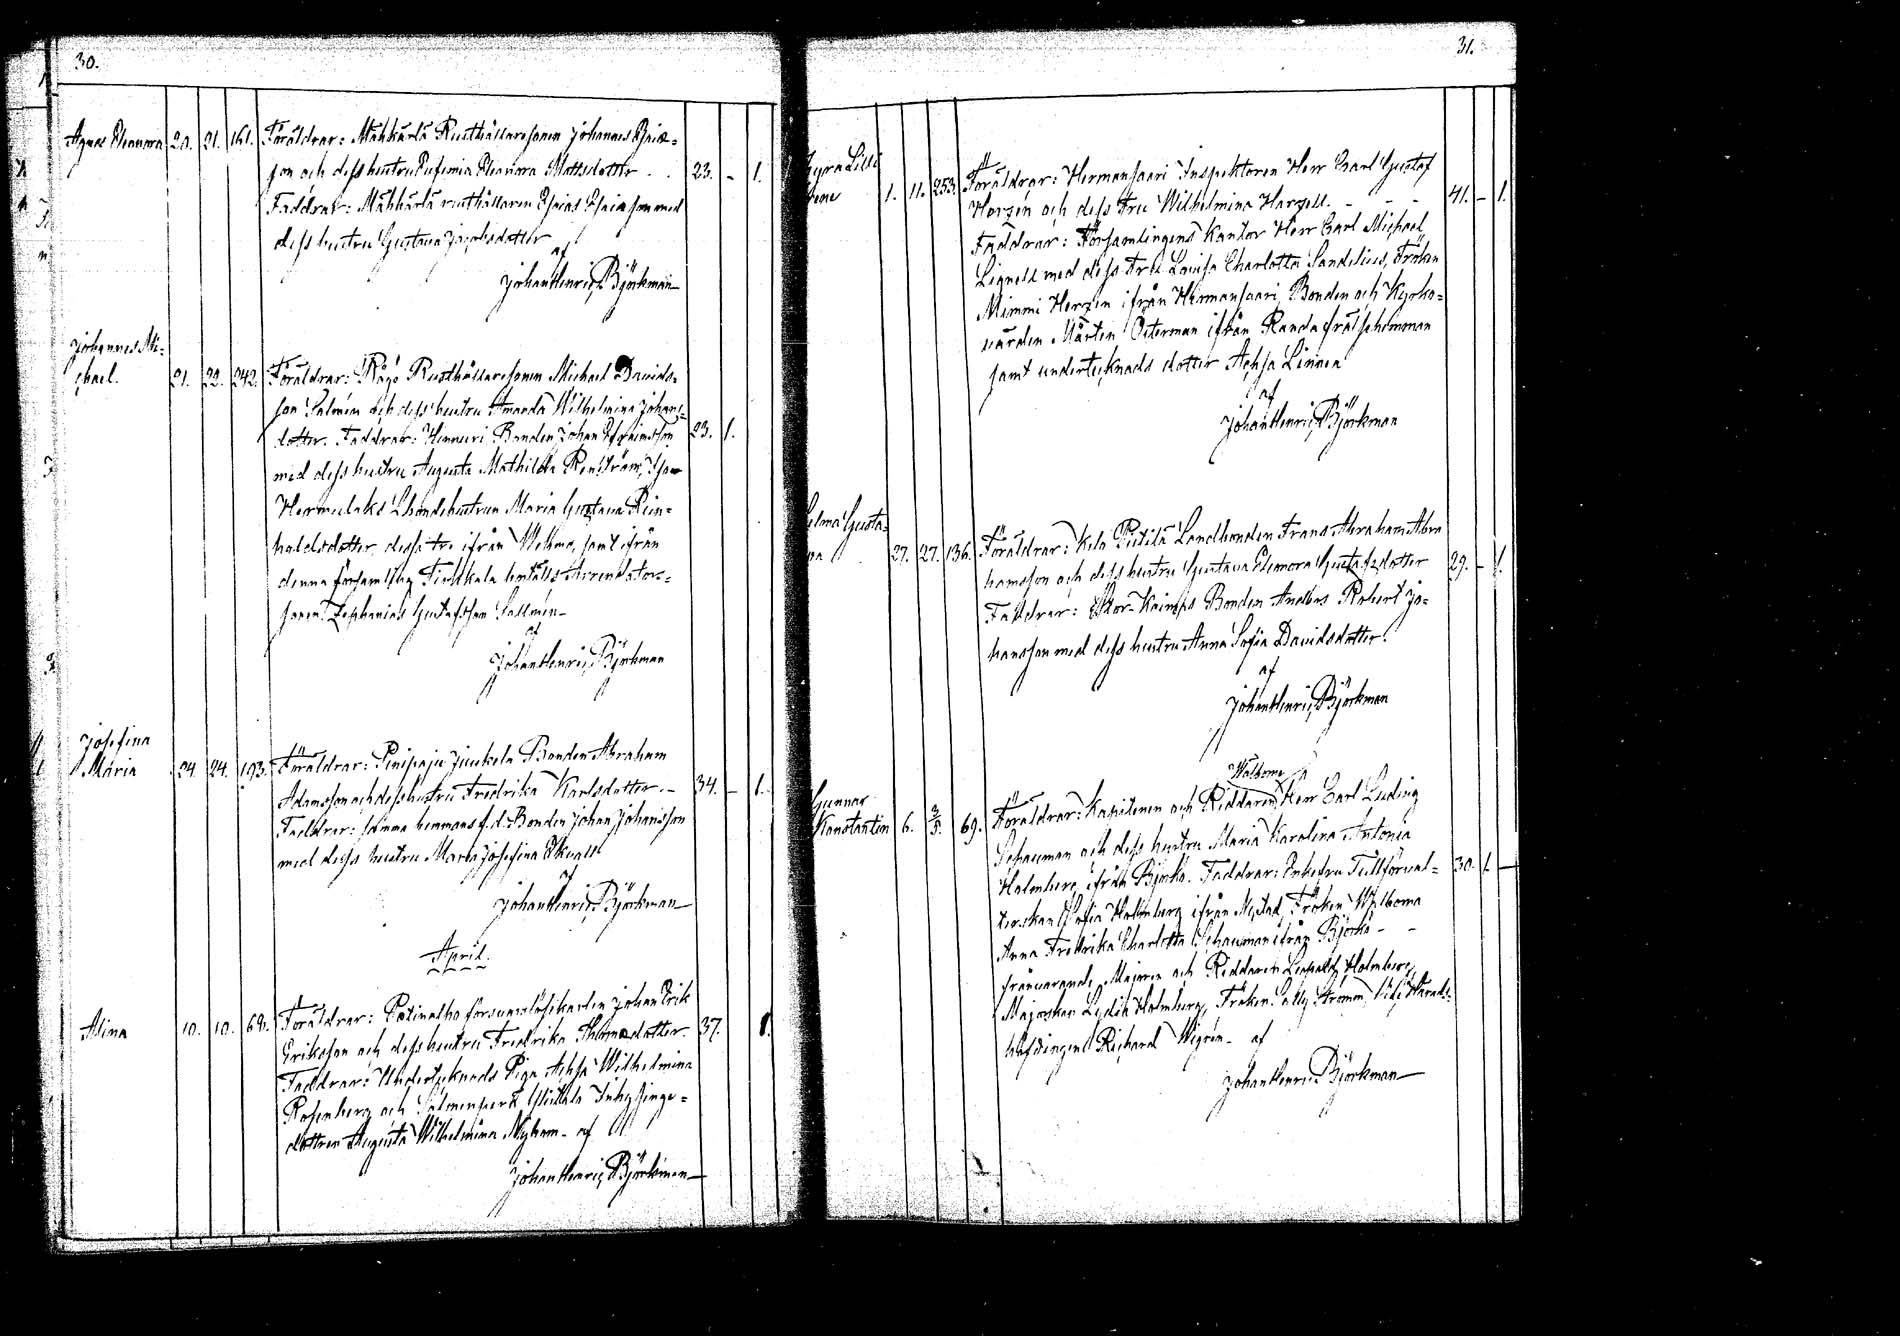 30.
Agnes Eleonora 20. 21. 161. Föräldrar: Mähkärlä Rusthållaresonen Johannes Esias-
son och dess hustru Eufemia Eleonora Mattsdotter 23. - 1.
Faddrar: Mähkärlä rusthållaren Esaias Esaiasson med
dess hustru Gustava Jacobsdotter
af
Johan Henric Björkman
Johannes Mi-
chael. 21. 22. 242. Föräldrar: Rågö Rusthållaresonen Michael Davids-
son Salmén och dess hustru Amanda Wilhelmina Johans-
dotter. Faddrar: Bonden Johan Efraimsson 23. 1.
med dess hustru Augusta Mathilda Renström,
hustrun Maria Gustava Rein-
holdsdotter, dessa tre ifrån Wehmo, samt ifrån
denna församling Arrendators-
sonen Zephanias Gustafsson Sallmén
af
Johan Henric Björkman
Josefina
Maria 24. 24. 193. Föräldrar: Pinipaju Juukola Bonden Abraham
Adamsson och dess hustru Fredrika Karlsdotter. - 34. - 1.
Faddrar: samma hemmans f.d. Bonden Johan Johansson
med dess hustru Maria Josefina Ekvall
af
Johan Henric Björkman
April.
Alina 10. 10. 68. Föräldrar: Johan Erik
Eriksson och dess hustru Fredrika Thomasdotter. 37. 1.
Faddrar: Undertecknads Piga Achsa Wilhelmina
Rosenberg och Inhysinge-
dottren Augusta Wilhelmina Nyham - af
Johan Henric Björkman
31.
Zyra Lilli
Irene 1. 11. 253. Föräldrar: Hermansaari Inspektoren Herr Carl Gustaf
Herzén och dess Fru Wilhelmina Harzell. - - - 41. - 1.
Faddrar: Församlingens Kantor Herr Carl Michael
Lignell med dess Fru Lovisa Charlotta Sandelius, Fröken
Mimmi Herzén ifrån Hermansaari, Bonden och Kyrko-
värden Mårten Österman ifrån Randa frälsehemman
samt undertecknads dotter Achsa Linnea
af
Johan Henric Björkman
Selma Gusta-
va 27. 27. 136. Föräldrar: Kela Pietilä Landbonden Frans Abraham Abra
hamsson och dess hustru Gustava Eleonora Gustafsdotter 29. - 1.
Faddrar: Stor-Kaimas Bonden Anders Robert Jo-
hansson med dess hustru Anna Sofia Davidsdotter.
af
Johan Henric Björkman
Walborne
Gunnar
Konstantin 6. 3/5. 69. Föräldrar: Kapitenen och Riddaren Herr Carl Ludvig
Schauman och dess hustru Maria Karolina Antonia
Holmberg ifrån Björkö. Faddrar: Enkefru Tullförval- 30. 1. -
terskan Sofia Holmberg ifrån Nystad, Fröken Wälborna
Anna Fredrika Charlotta Schauman ifrån Björkö - -
frånvarande, Majoren och Riddaren Leopold Holmberg,
Majorskan Lydia Holmberg, Fröken Sally Strömm, Vice Härads-
höfdingen Richard Wigrén - af
Johan Henric Björkman